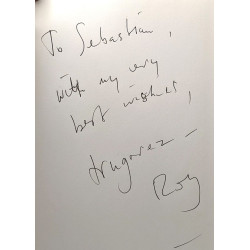 To Sebastian,
with my very
best wishes,
Roy